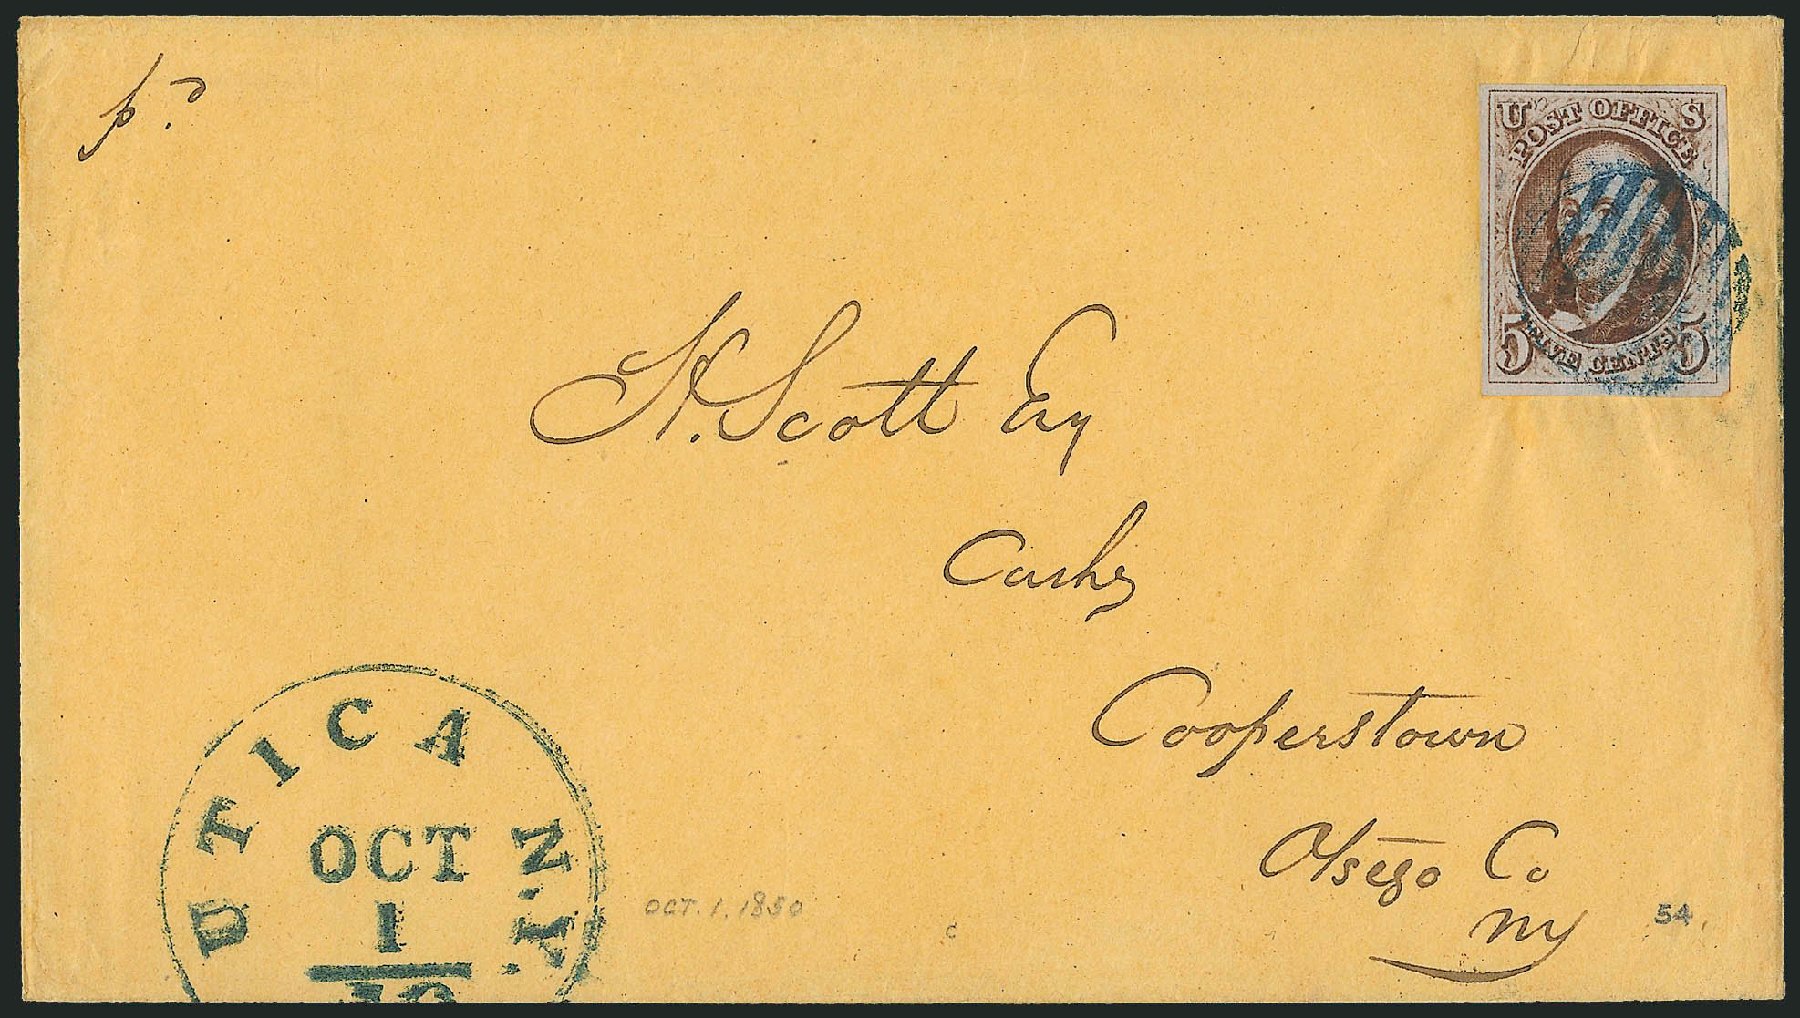 pd.
U S
POST OFFICE
5 FIVE CENTS 5
H. Scott Esq
Cashr
Cooperstown
Otsego Co
NY
UTICA N.Y.
OCT
1
10
OCT. 1. 1850
c
54.